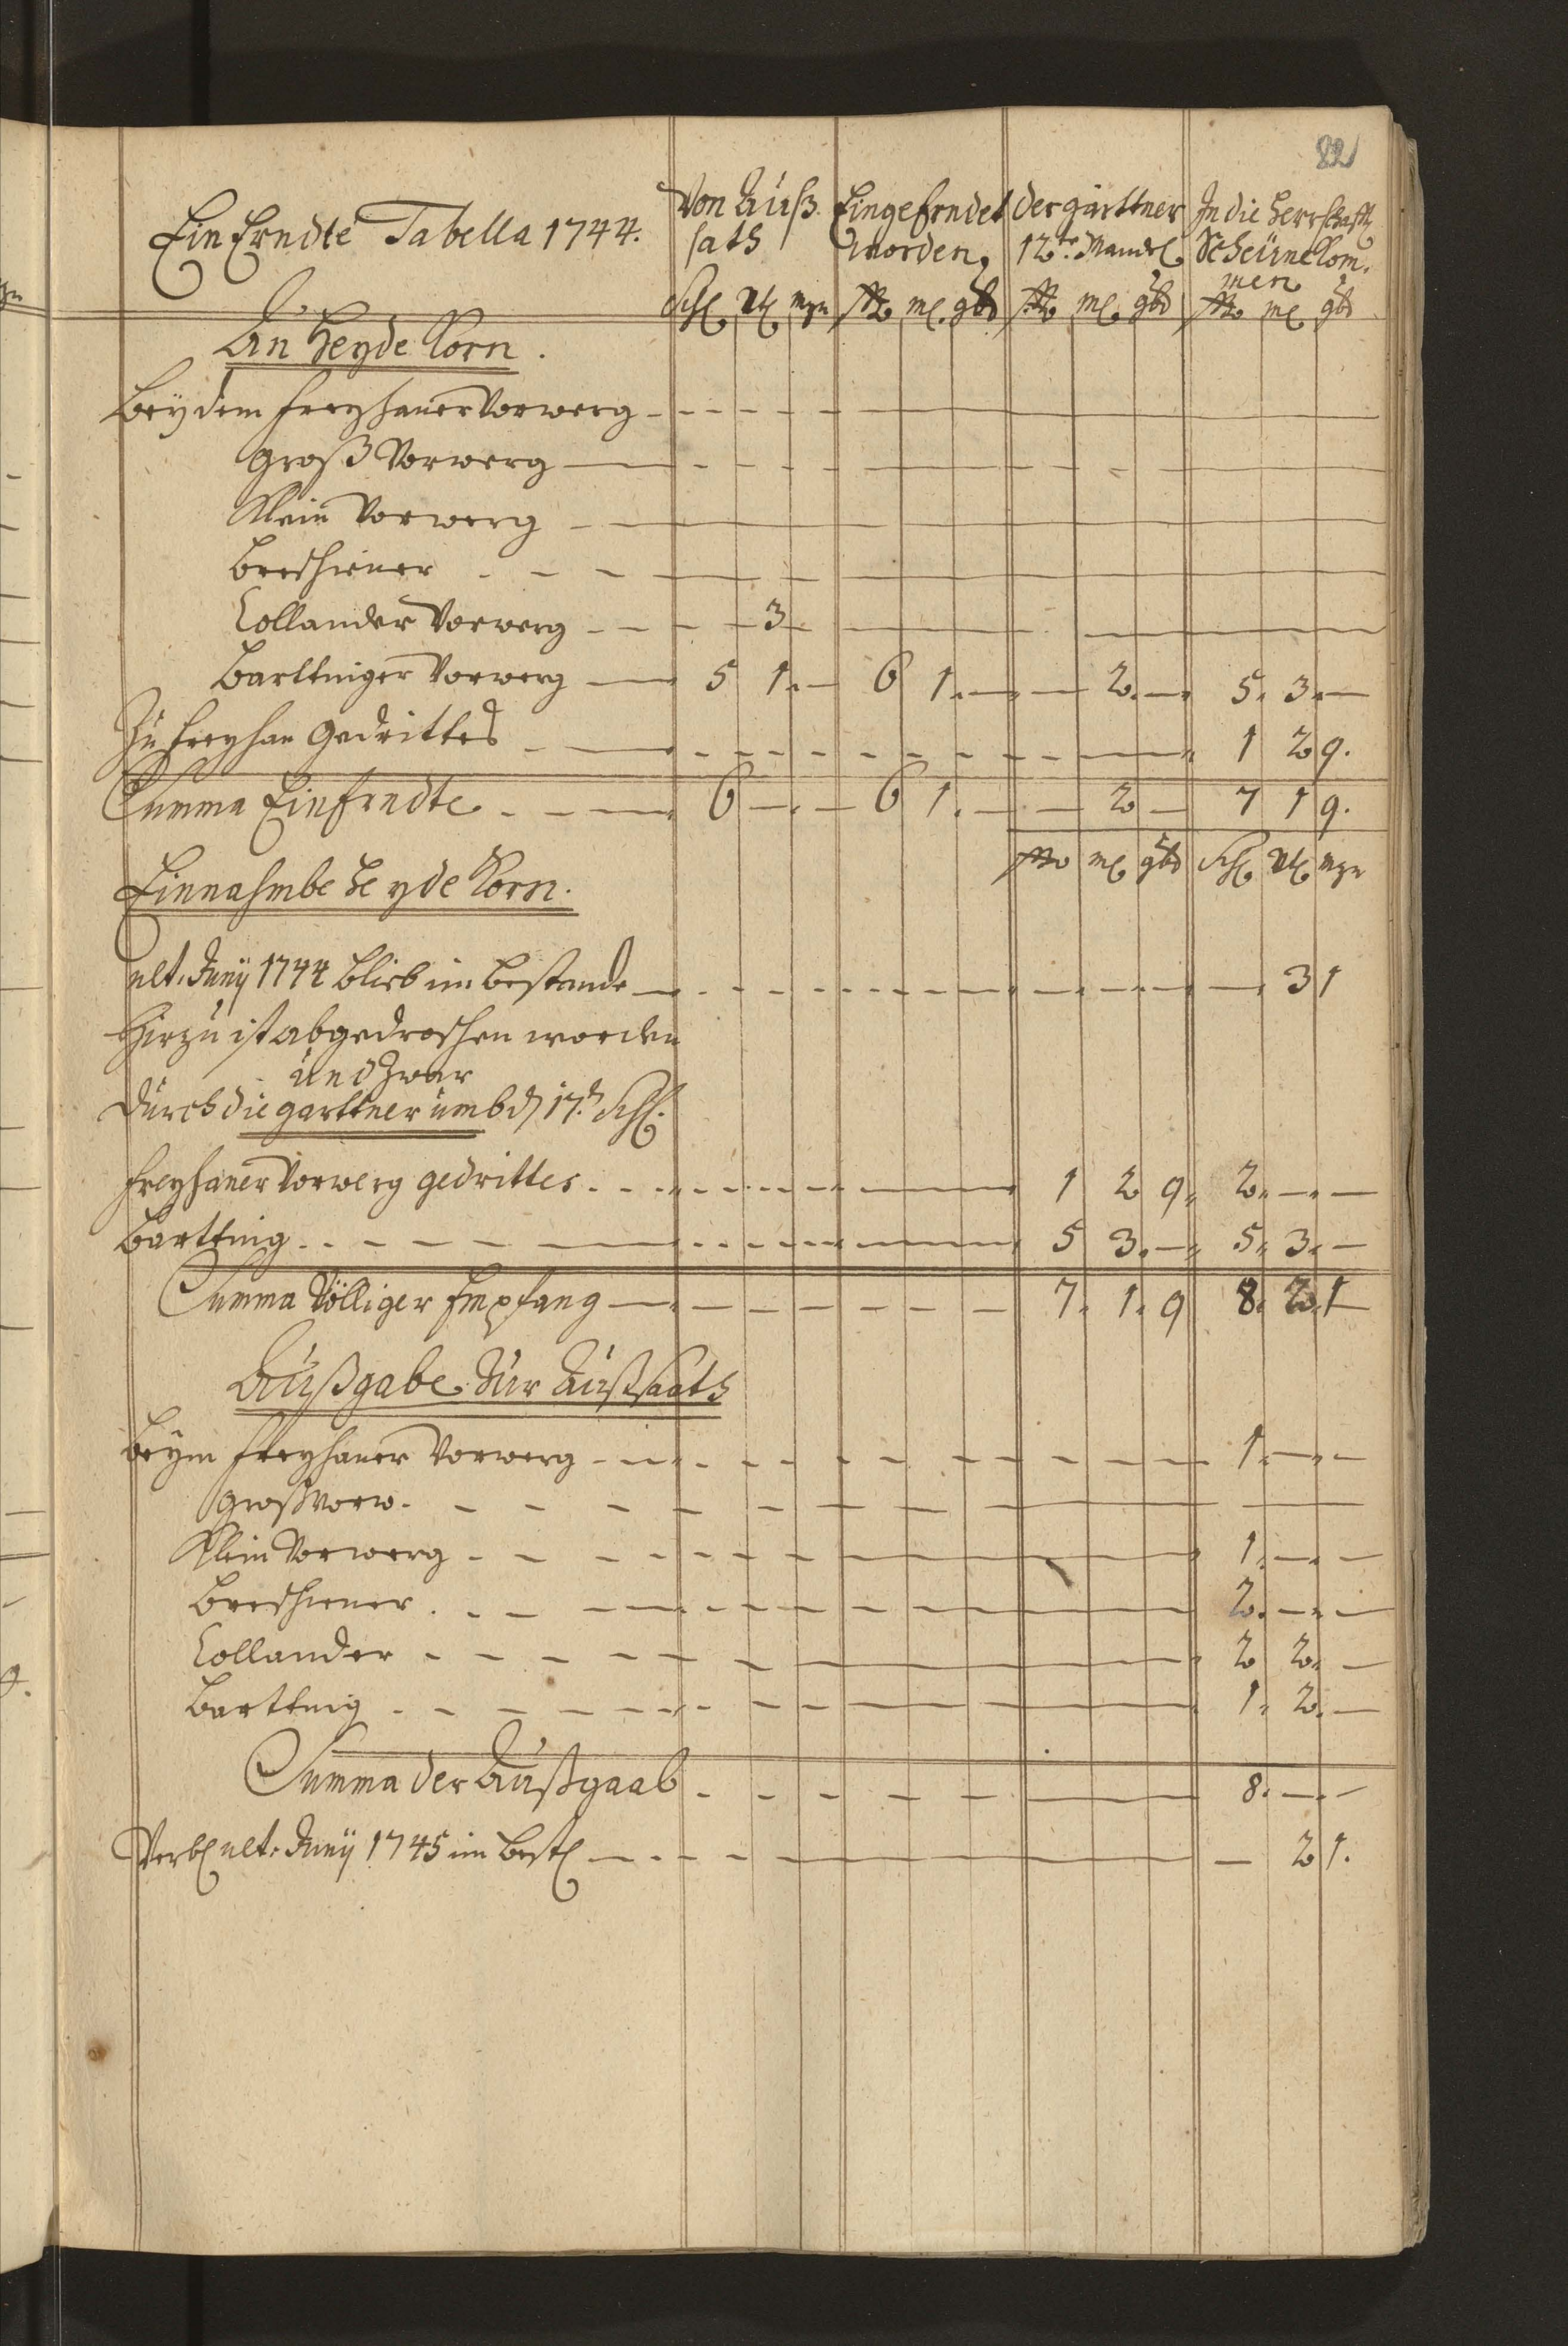 82
Ein Erndte Tabella 1744.
Von Auß
sath
Eingeerndet
worden,
der gärttner
12te. Mandl
In die Herrschafft
Scheüne kom„
men
Schl Vtl mzn ßo ml. gbd ßo ml gbd ßo ml gbd
An Heyde Korn.
Beÿ dem Freyhaner Vorwerg
Groß Vorwerg
Klein Vorwerg
Breschiner
Collander Vorwerg 3
Barttniger Vorwerg 5 1. — 6 1. — — 2. — 5. 3. —
Zu Freyhan Gedrittes 1 2 9.
Summa Einerndte 6 — — 6 1. — — 2 — 7 1 9.
ßo ml gbd Schl Vtl mzn
Einnahmbe Heyde Korn.
ult. Junÿ 1744 blieb im Bestande — 3 1
Hierzu ist abgedroschen worden
und zwar
Durch die garttner umb d 17.t Schl.
Freyhaner Vorwerg gedrittes 1 2 9. 2. — —
Barttnig 5 3. — 5. 3. —
Summa Völliger Empfang 7. 1. 9 8. 2. 1
Außgabe Zur Außsaath
Beÿm Freyhaner Vorwerg 1. — —
Groß Vorw.
Klein Vorwerg 1. — —
Breschiner 2. — —
Collander 2 2. —
Barttnig 1. 2. —
Summa der Außgaab 8. — —
Verbl ult. Junÿ 1745 im Bestl — 2 1.